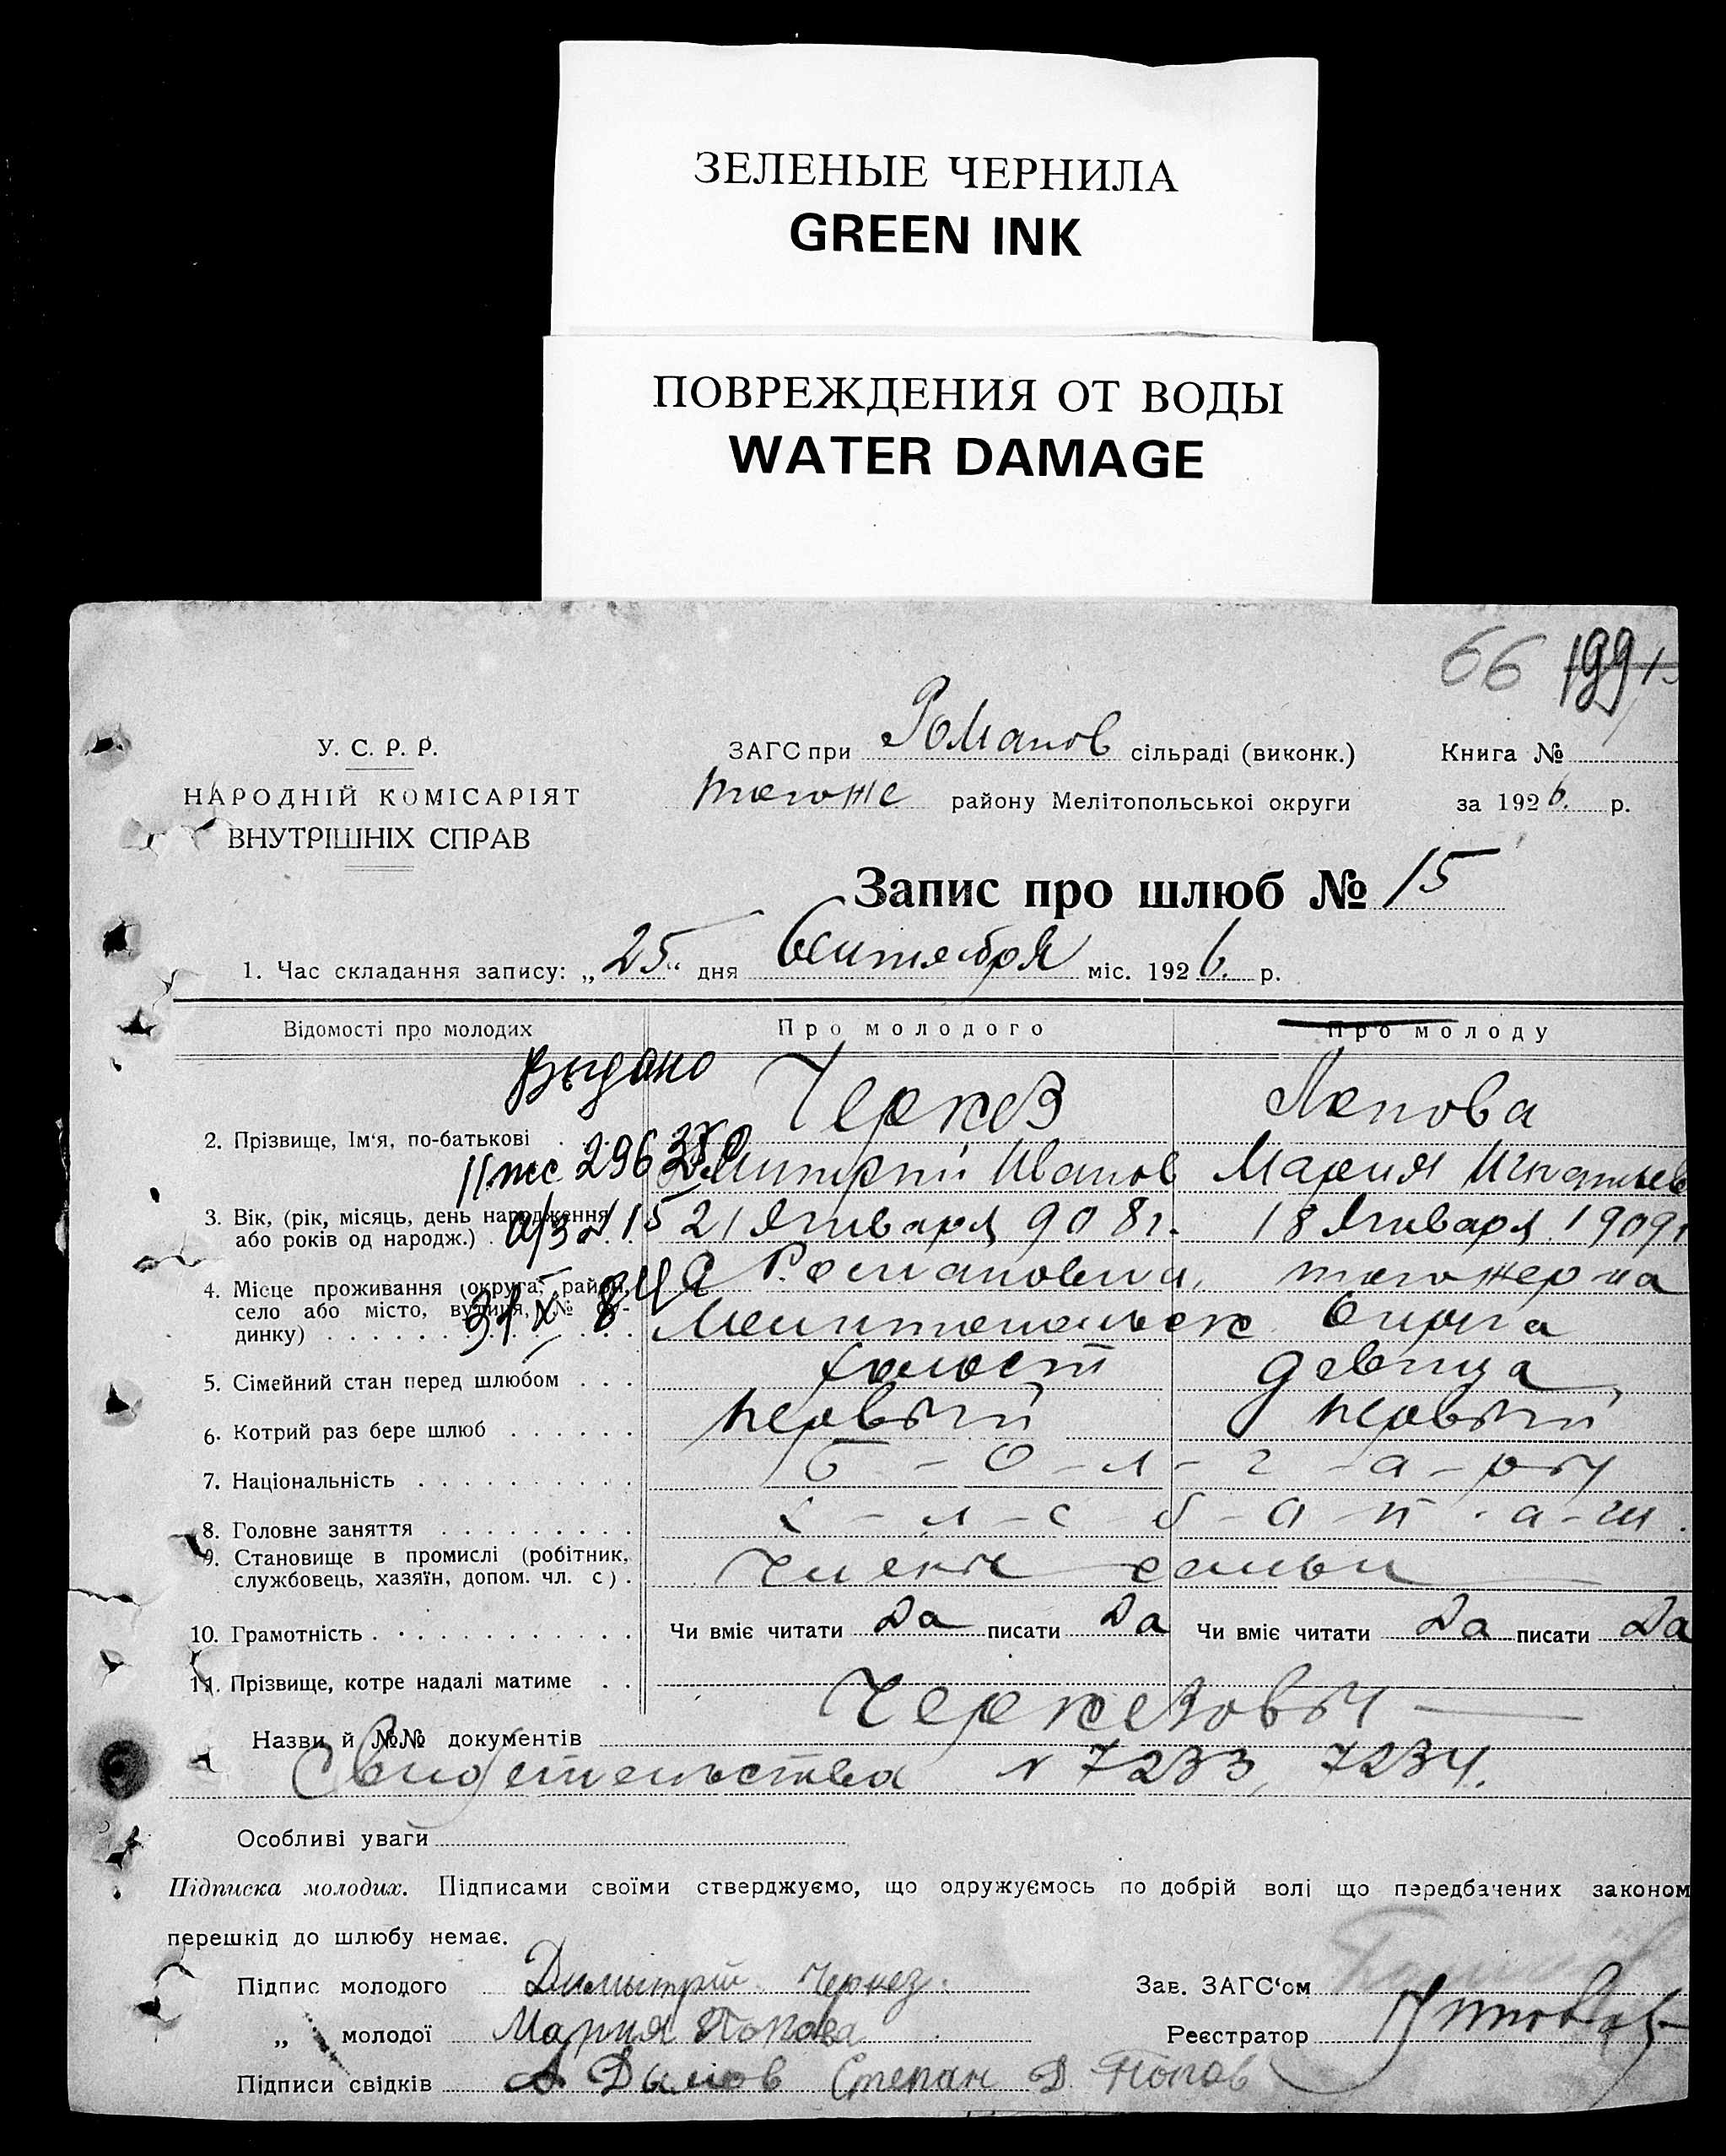 ЗЕЛЕНЫЕ ЧЕРНИЛА
GREEN INK
ПОВРЕЖДЕНИЯ ОТ ВОДЫ
WATER DAMAGE
66 199
У. С. Р. Р.
НАРОДНІЙ КОМІСАРІЯТ
ВНУТРІШНІХ СПРАВ
ЗАГС при Романов сільраді (виконк.) Книга №
тогоже району Мелітопольської округи за 1926. р.
Запис про шлюб № 15
1. Час складання запису: „25“ дня Сентября міс. 1926. р.
Відомості про молодих Про молодого Про молоду
Выдано
Черкез Попова
2. Прізвище, Ім‘я, по-батькові . . .
296
Димитрий Иванов Мария Игнатьев
3. Вік, (рік, місяць, день народження або років од народж.) . 21 Января 908 г. 18 Января 1909 г
4. Місце проживання (округа, район, село або місто, вулиця, № будинку) . . . Романовка, тогожер на
Мелитопольск Округа
5. Сімейний стан перед шлюбом . . . холост девица,
6. Котрий раз бере шлюб . . . . . . первый первый
7. Національність . . . . . . . . . . Б - о - л - г - а - ры
8. Головне заняття . . . . . . . . . х - л - е - б - а - п - а - ш.
9. Становище в промислі (робітник, службовець, хазяїн, допом. чл. с) . Члены семьи
10. Грамотність . . . . . . . . . . . . Чи вміє читати Да писати Да Чи вміє читати Да писати Да
11. Прізвище, котре надалі матиме . . Черкезовы
Назви й №№ документів
Свидетельства N 7233, 7234.
Особливі уваги
Підписка молодих. Підписами своїми стверджуємо, що одружуємось по добрій волі що передбачених законом
перешкід до шлюбу немає.
Підпис молодого Димытрий Черкез. Зав. ЗАГС‘ом
„ молодої Мария Попова Реєстратор
Підписи свідків Степан Д Попов